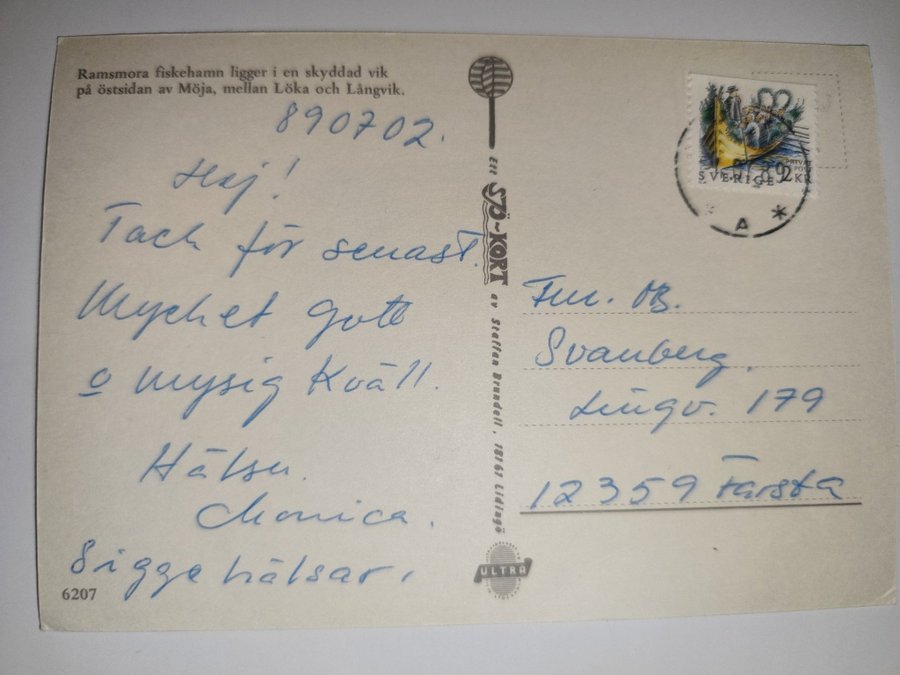 Ramsmora fiskehamn ligger i en skyddad vik
på östsidan av Möja, mellan Löka och Långvik.
890702.
Hej!
Tack för senast.
Mycket gott
o mysig kväll.
Hälsn.
Monica.
Sigge hälsar.
6207
ett SJÖ-KORT av Staffan Brundell, 18161 Lidingö
ULTRA
SVERIGE 2 KR
PRIVAT
A *
Fam. OB.
Svanberg.
Lingv. 179
12359 Farsta